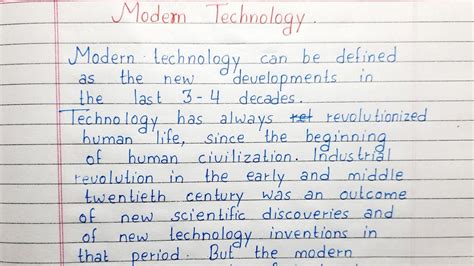 Modern Technology.
Modern technology can be defined
as the new developments in
the last 3-4 decades.
Technology has always ret revolutionized
human life, since the beginning
of human civilization. Industrial
revolution in the early and middle
twentieth century was an outcome
of new scientific discoveries and
of new technology inventions in
that period. But the modern